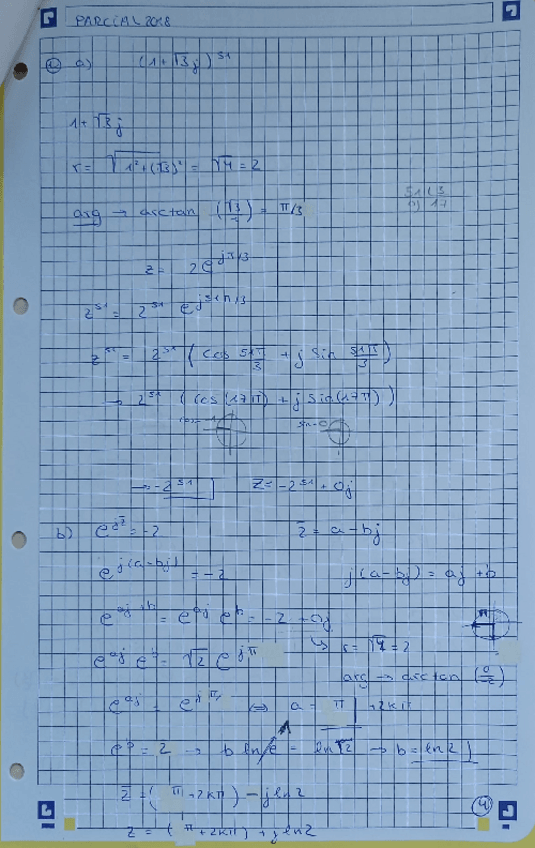 PARCIAL 2018
1. a) (1+√3j)^51
1+√3j
r = √(1²+(√3)²) = √4 = 2
arg → arctan (√3/1) = π/3
51 | 3
0) 17
z = 2e^(jπ/3)
z^51 = 2^51 e^(j51π/3)
z^51 = 2^51 (cos 51π/3 + j sin 51π/3)
→ 2^51 (cos(17π) + j sin(17π))
cos=-1 sin=0
→ -2^51 z = -2^51 + 0j
b) e^(jz̄) = -2 z̄ = a - bj
e^(j(a-bj)) = -2 j(a-bj) = aj + b
e^(aj+b) = e^(aj) e^b = -2 + 0j
π
↳ r = √4 = 2
e^(aj) e^b = √2 e^(jπ)
arg → arctan (0/-2)
e^(aj) = e^(jπ) ⇔ a = π + 2kπ
e^b = 2 → b ln e = ln √2 → b = ln 2
z̄ = (π + 2kπ) - j ln 2
z = (π + 2kπ) + j ln 2
4